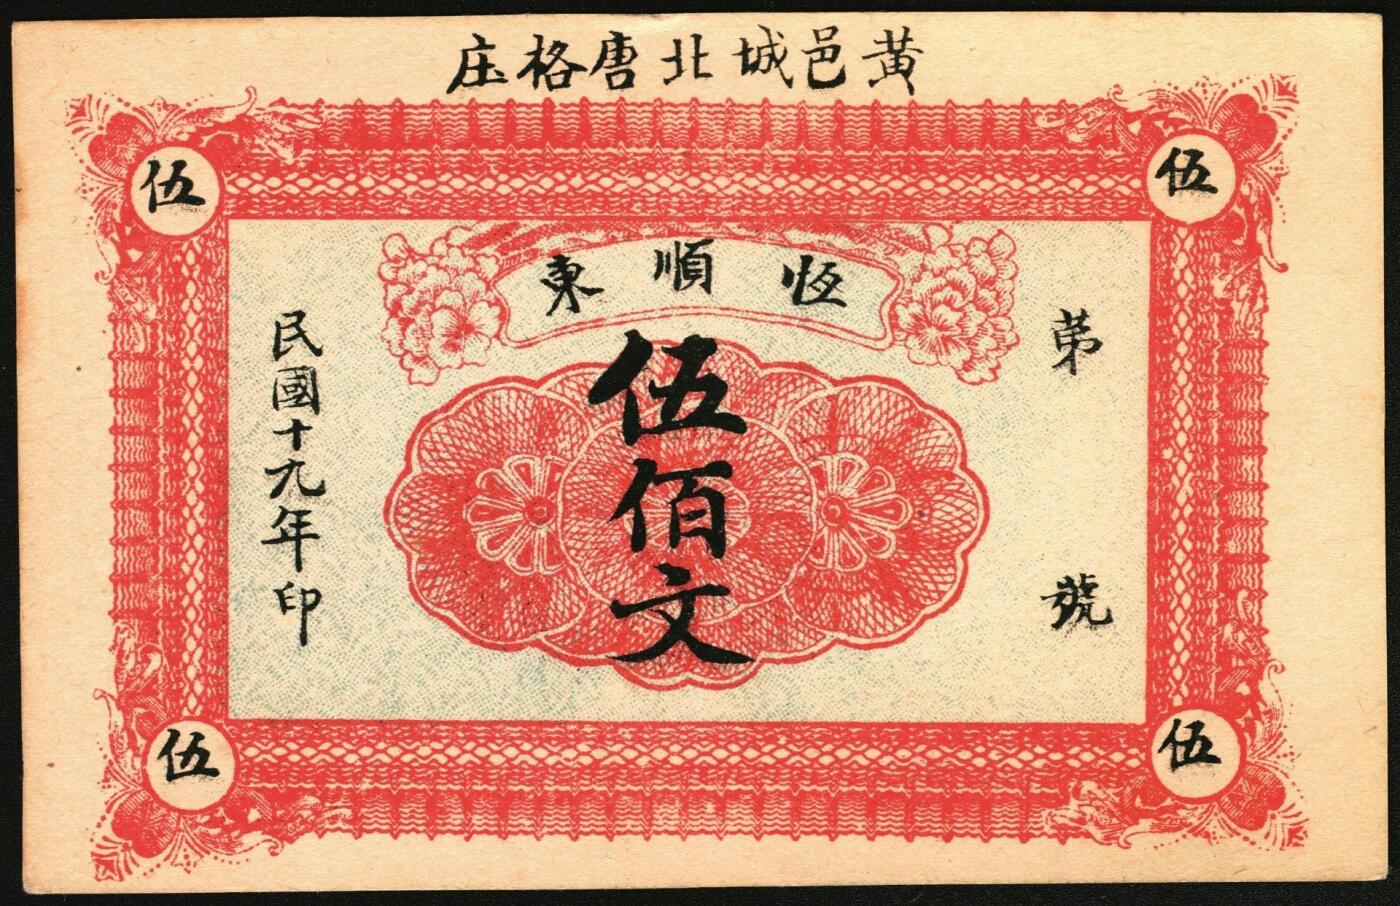 黃邑城北唐格庄
恆順東
伍
伍
第 號
伍佰文
民國十九年印
伍
伍